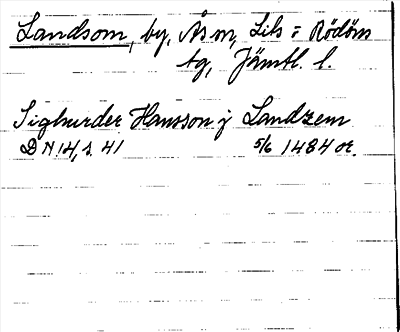 Landsom, by, Ås sn, Lits o Rödöns
tg, Jämtl. l.
Sighurder Hansson j Landzem
DN 14, s. 41 5/6 1484 or.